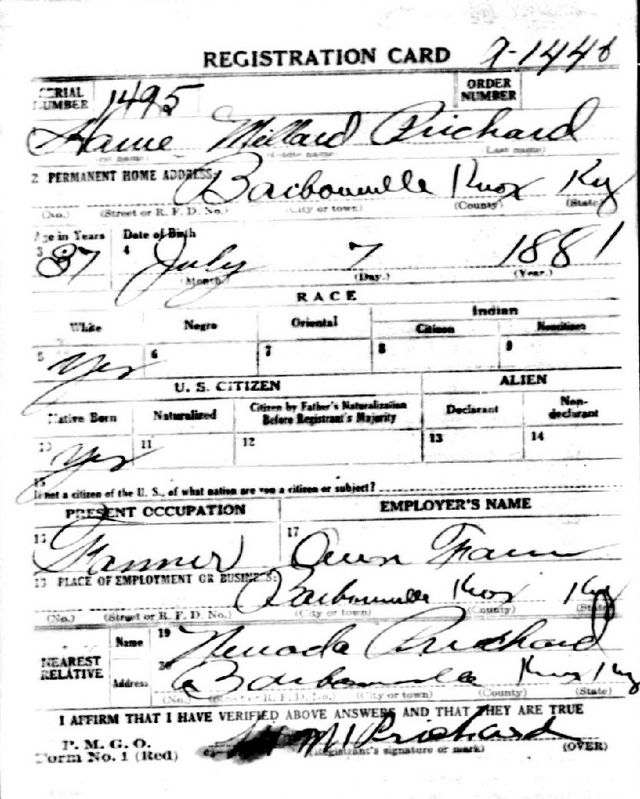 REGISTRATION CARD 9-1446
SERIAL NUMBER 1495 ORDER NUMBER
Millard Prichard
(First name) (Middle name) (Last name)
2 PERMANENT HOME ADDRESS: Barbourville Knox Ky
(No.) (Street or R. F. D. No.) (City or town) (County) (State)
Age in Years Date of Birth
3 37 4 July 7 1881
(Month.) (Day.) (Year.)
RACE
White Negro Oriental Indian
Citizen Noncitizen
5 Yes 6 7 8 9
U. S. CITIZEN ALIEN
Native Born Naturalized Citizen by Father's Naturalization Before Registrant's Majority Declarant Non-declarant
10 Yes 11 12 13 14
15 If not a citizen of the U. S., of what nation are you a citizen or subject?
PRESENT OCCUPATION EMPLOYER'S NAME
16 Farmer 17 Own Farm
18 PLACE OF EMPLOYMENT OR BUSINESS: Barbourville Knox Ky
(No.) (Street or R. F. D. No.) (City or town) (County) (State)
NEAREST RELATIVE Name 19 Nevada Prichard
Address 20 Barbourville Knox Ky
(No.) (Street or R. F. D. No.) (City or town) (County) (State)
I AFFIRM THAT I HAVE VERIFIED ABOVE ANSWERS AND THAT THEY ARE TRUE
P. M. G. O.
Form No. 1 (Red) M Prichard
(Registrant's signature or mark) (OVER)